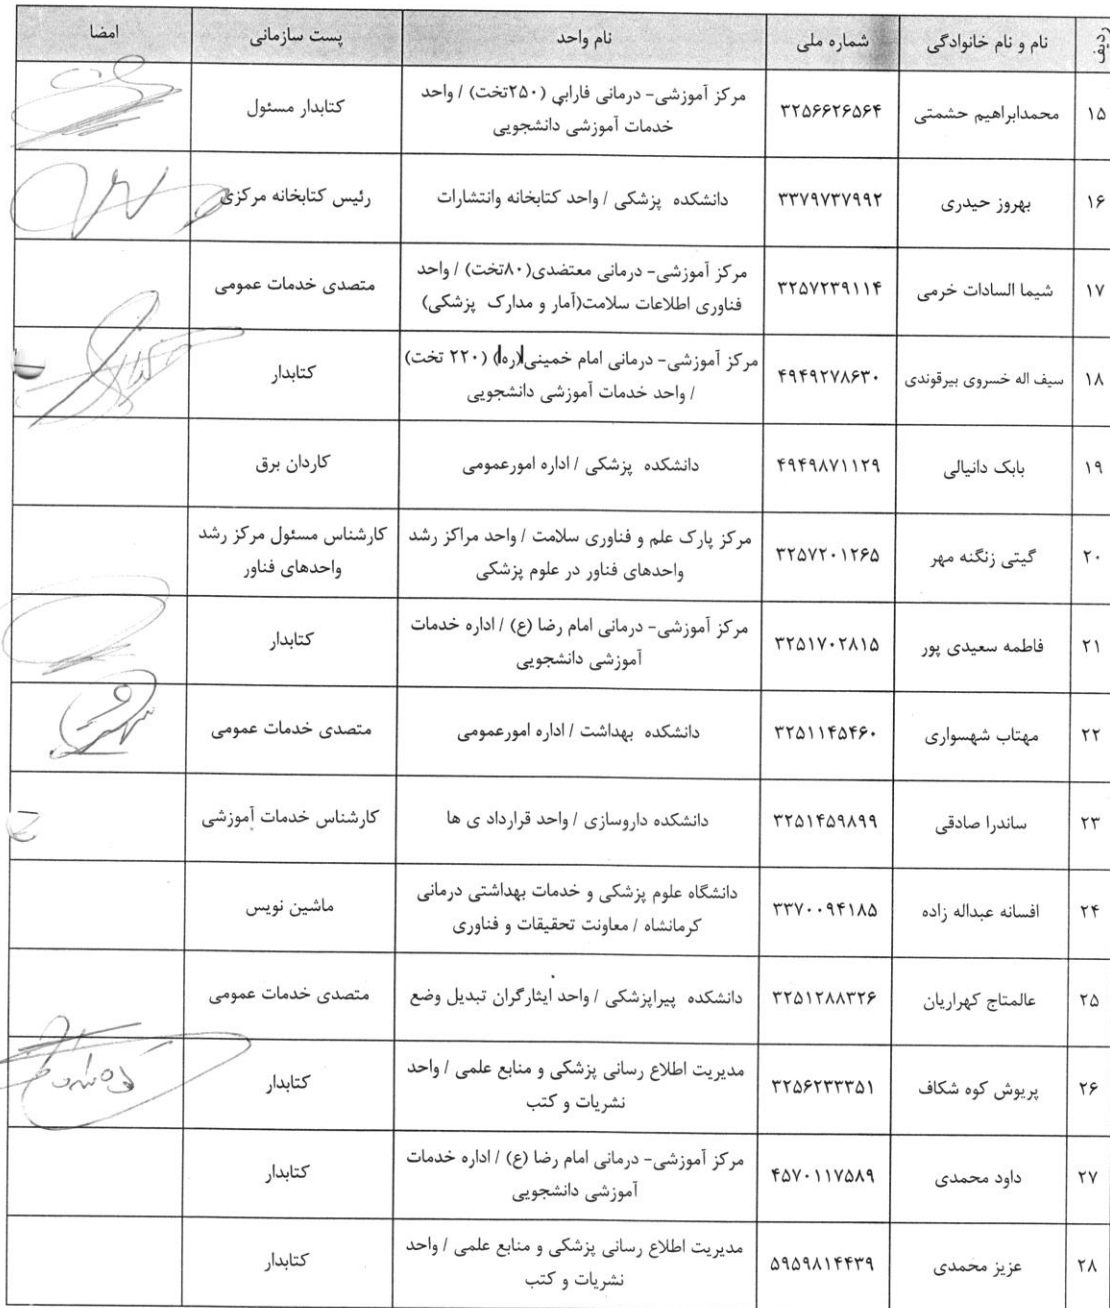 ردیف نام و نام خانوادگی شماره ملی نام واحد پست سازمانی امضا
۱۵ محمدابراهیم حشمتی ۳۲۵۶۶۲۶۵۶۴ مرکز آموزشی- درمانی فارابی (۲۵۰تخت) / واحد کتابدار مسئول
خدمات آموزشی دانشجویی
۱۶ بهروز حیدری ۳۳۷۹۷۳۷۹۹۲ دانشکده پزشکی / واحد کتابخانه وانتشارات رئیس کتابخانه مرکزی
۱۷ شیما السادات خرمی ۳۲۵۷۲۳۹۱۱۴ مرکز آموزشی- درمانی معتضدی(۸۰تخت) / واحد متصدی خدمات عمومی
فناوری اطلاعات سلامت(آمار و مدارک پزشکی)
۱۸ سیف اله خسروی بیرقوندی ۴۹۴۹۲۷۸۶۳۰ مرکز آموزشی- درمانی امام خمینی(ره) (۲۲۰ تخت) کتابدار
/ واحد خدمات آموزشی دانشجویی
۱۹ بابک دانیالی ۴۹۴۹۸۷۱۱۲۹ دانشکده پزشکی / اداره امورعمومی کاردان برق
۲۰ گیتی زنگنه مهر ۳۲۵۷۲۰۱۲۶۵ مرکز پارک علم و فناوری سلامت / واحد مراکز رشد کارشناس مسئول مرکز رشد
واحدهای فناور در علوم پزشکی واحدهای فناور
۲۱ فاطمه سعیدی پور ۳۲۵۱۷۰۲۸۱۵ مرکز آموزشی- درمانی امام رضا (ع) / اداره خدمات کتابدار
آموزشی دانشجویی
۲۲ مهتاب شهسواری ۳۲۵۱۱۴۵۴۶۰ دانشکده بهداشت / اداره امورعمومی متصدی خدمات عمومی
۲۳ ساندرا صادقی ۳۲۵۱۴۵۹۸۹۹ دانشکده داروسازی / واحد قرارداد ی ها کارشناس خدمات آموزشی
۲۴ افسانه عبداله زاده ۳۳۷۰۰۹۴۱۸۵ دانشگاه علوم پزشکی و خدمات بهداشتی درمانی ماشین نویس
کرمانشاه / معاونت تحقیقات و فناوری
۲۵ عالمتاج کهراریان ۳۲۵۱۲۸۸۳۲۶ دانشکده پیراپزشکی / واحد ایثارگران تبدیل وضع متصدی خدمات عمومی
۲۶ پریوش کوه شکاف ۳۲۵۶۲۳۳۳۵۱ مدیریت اطلاع رسانی پزشکی و منابع علمی / واحد کتابدار
نشریات و کتب
۲۷ داود محمدی ۴۵۷۰۱۱۷۵۸۹ مرکز آموزشی- درمانی امام رضا (ع) / اداره خدمات کتابدار
آموزشی دانشجویی
۲۸ عزیز محمدی ۵۹۵۹۸۱۴۴۳۹ مدیریت اطلاع رسانی پزشکی و منابع علمی / واحد کتابدار
نشریات و کتب